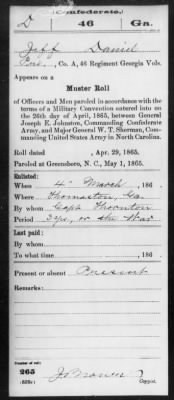 Confederate.
D 46 Ga.
Jeff Daniel
Priv., Co. A, 46 Regiment Georgia Vols.
Appears on a
Muster Roll
of Officers and Men paroled in accordance with the
terms of a Military Convention entered into on
the 26th day of April, 1865, between General
Joseph E. Johnston, Commanding Confederate
Army, and Major General W. T. Sherman, Com-
manding United States Army in North Carolina.
Roll dated , Apr. 29, 1865.
Paroled at Greensboro, N. C., May 1, 1865.
Enlisted:
When 4" March , 186 .
Where Thomaston, Ga.
By whom Capt Thornton
Period 3 yrs, or the War
Last paid:
By whom
To what time , 186 .
Present or absent Present
Remarks:
Number of roll:
265
Copyist.